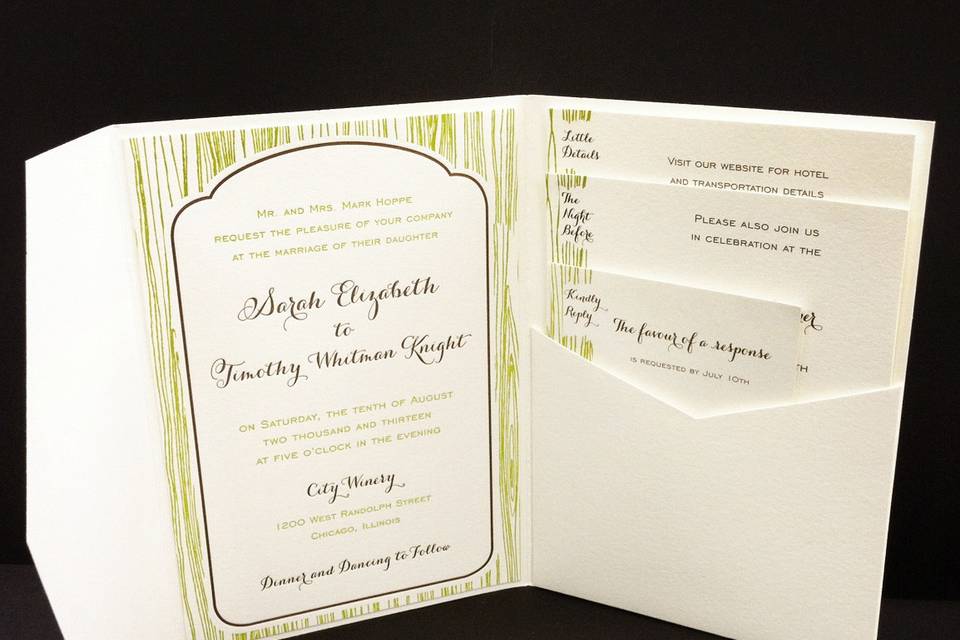 Mr. and Mrs. Mark Hoppe
request the pleasure of your company
at the marriage of their daughter
Sarah Elizabeth
to
Timothy Whitman Knight
on Saturday, the tenth of August
two thousand and thirteen
at five o'clock in the evening
City Winery
1200 West Randolph Street
Chicago, Illinois
Dinner and Dancing to Follow
Little
Details
Visit our website for hotel
and transportation details
The
Night
Before
Please also join us
in celebration at the
Kindly
Reply
The favour of a response
is requested by July 10th